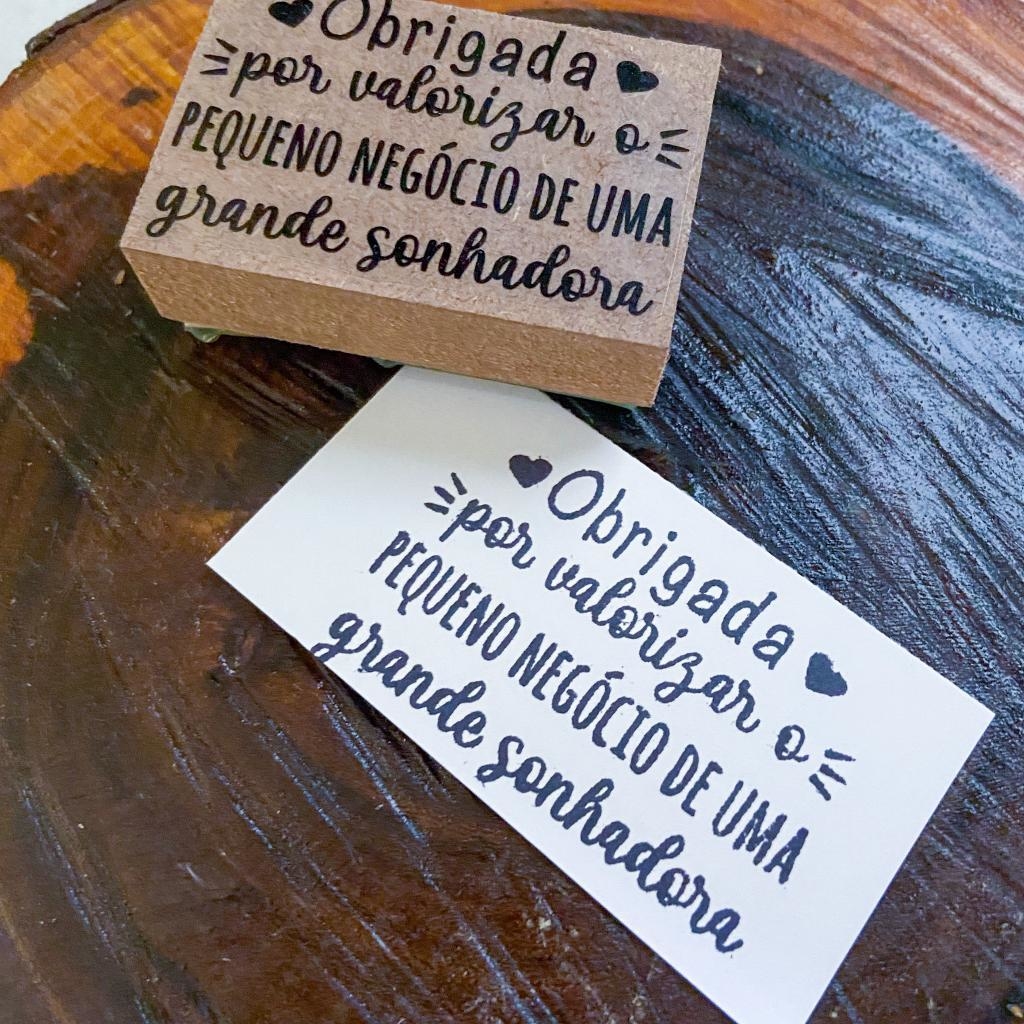 Obrigada
por valorizar o
PEQUENO NEGÓCIO DE UMA
grande sonhadora
Obrigada
por valorizar o
PEQUENO NEGÓCIO DE UMA
grande sonhadora